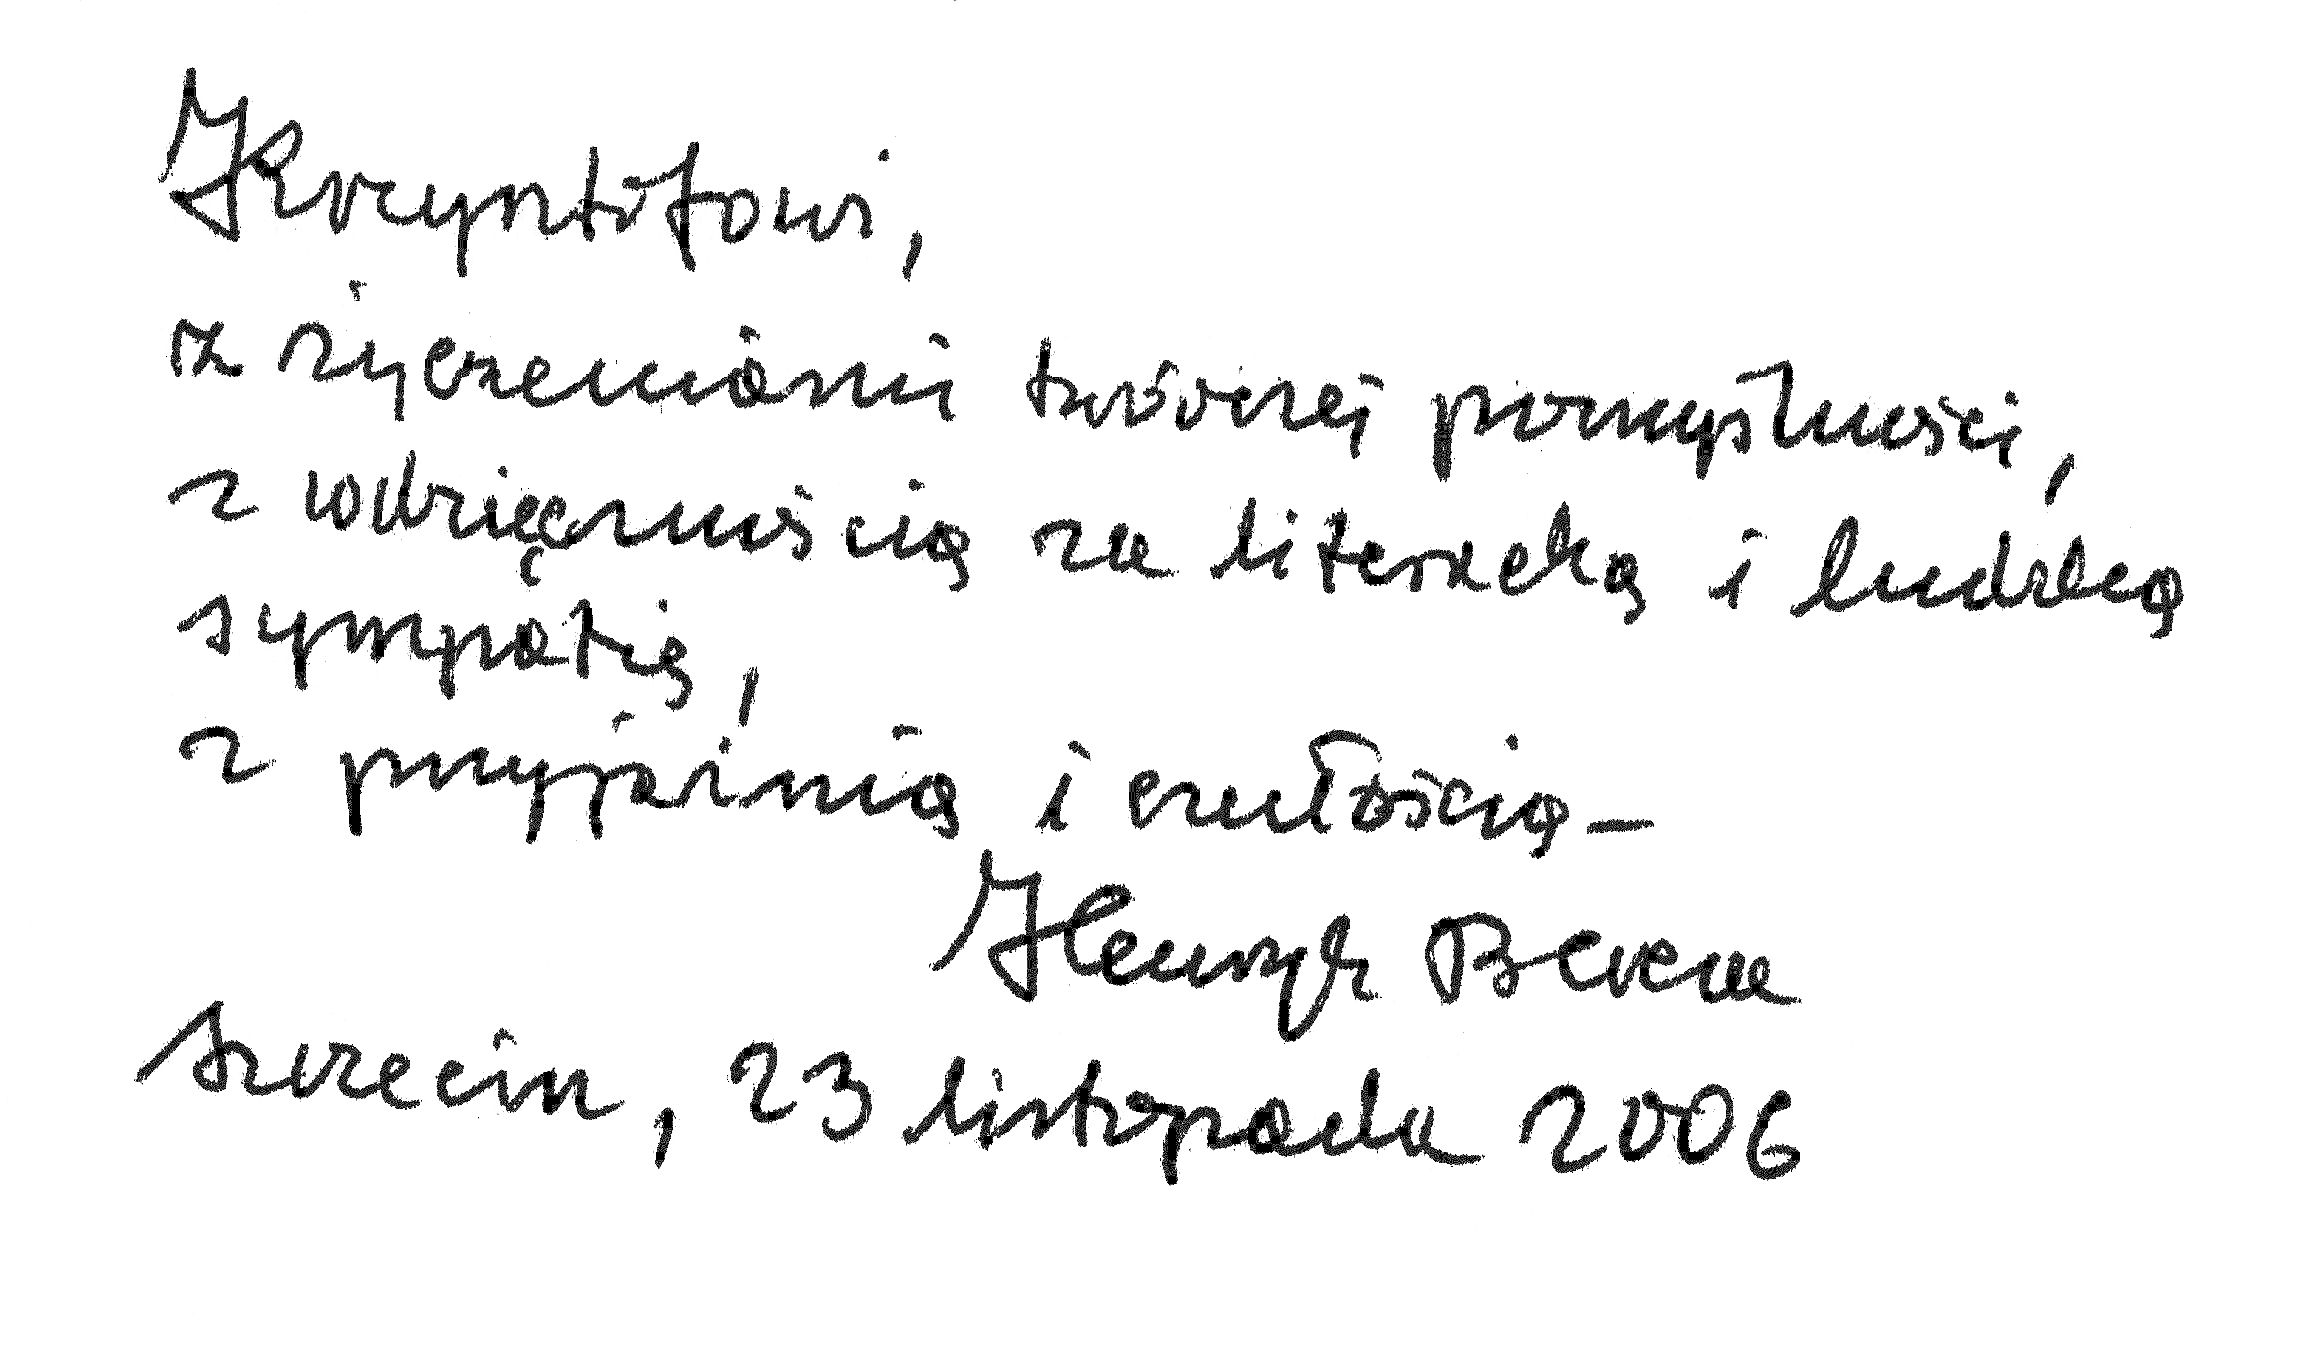 Krzysztofowi,
z życzeniami twórczej pomyślności,
z wdzięcznością za literacką i ludzką
sympatię,
z przyjaźnią i czułością –
Henryk Bereza
Szczecin, 23 listopada 2006